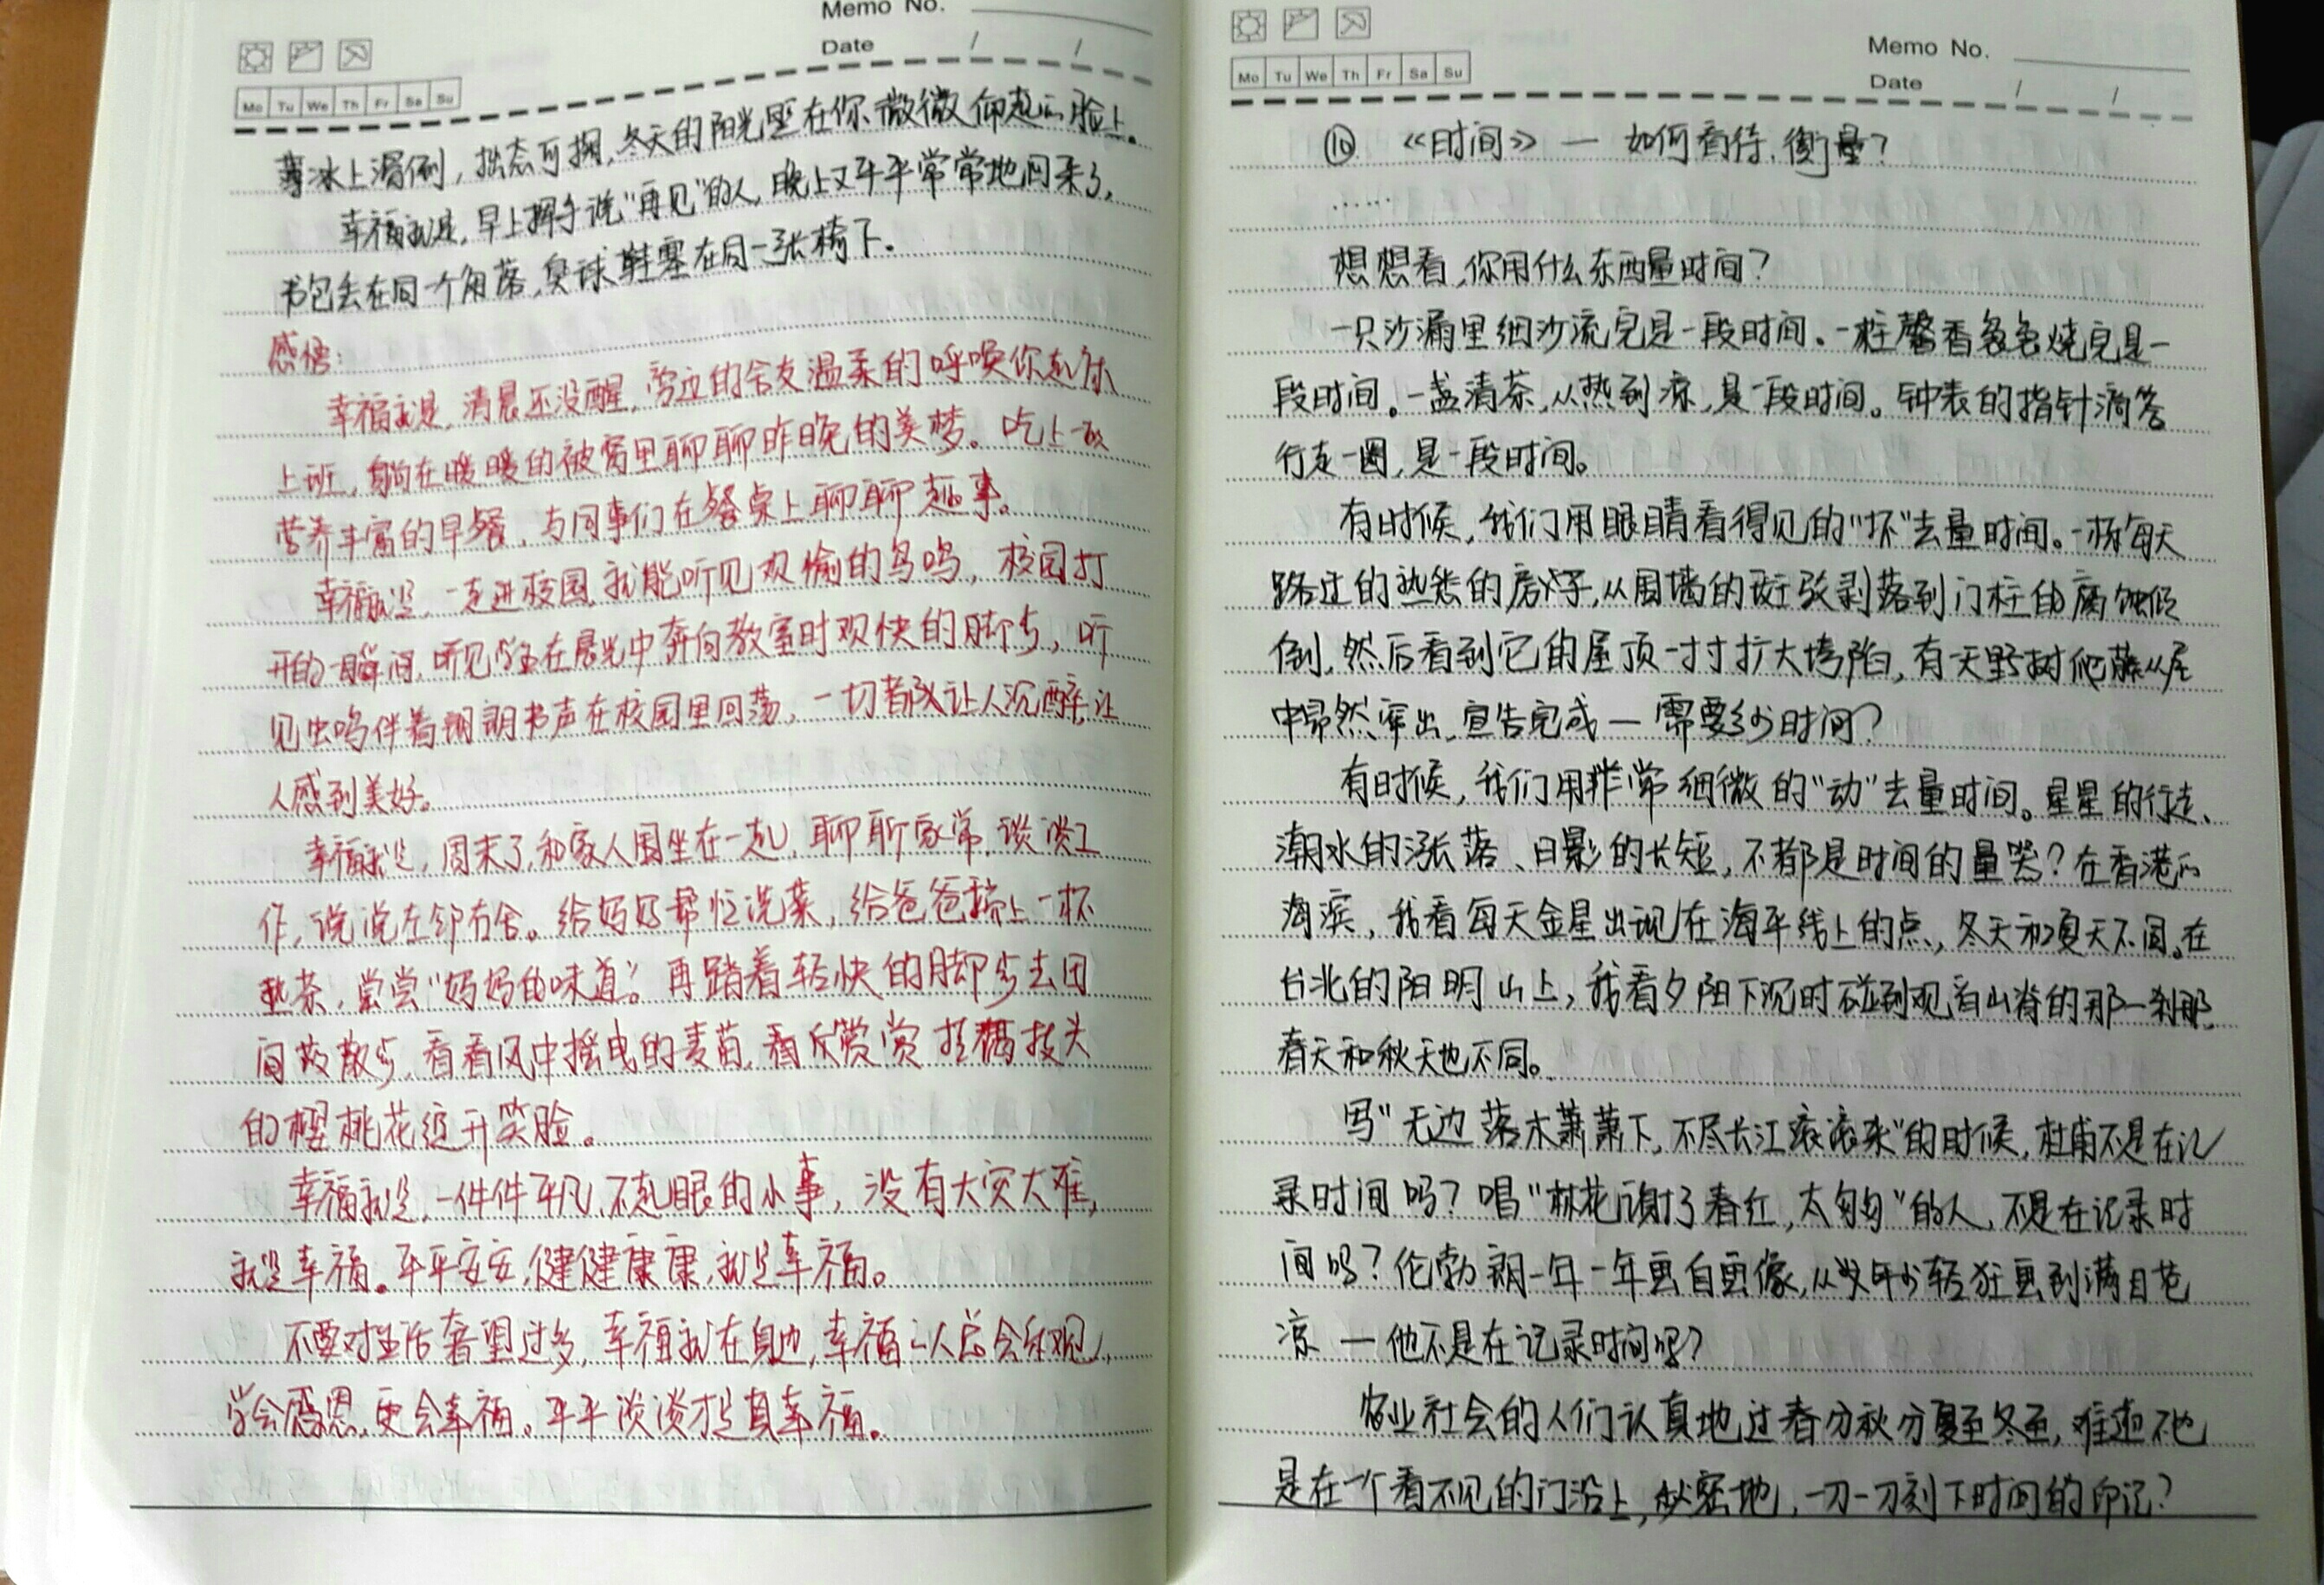 Memo No.
Date / /
Mo Tu We Th Fr Sa Su
薄冰上滑倒，拙态可掬，冬天的阳光照在你微微仰起的脸上。
幸福就是，早上挥手说“再见”的人，晚上又平平常常地回来了，
书包丢在同一个角落，臭球鞋塞在同一张椅下。
感悟：
幸福就是，清晨还没醒，旁边的舍友温柔的呼唤你起床
上班，躺在暖暖的被窝里聊聊昨晚的美梦。吃上一顿
营养丰富的早餐，与同事们在餐桌上聊聊趣事。
幸福就是，一走进校园，就能听见欢愉的鸟鸣，校园打
开的一瞬间，听见学生在晨光中奔向教室时欢快的脚步，听
见虫鸣伴着朗朗书声在校园里回荡，一切都让人沉醉，让
人感到美好。
幸福就是，周末了，和家人围坐在一起，聊聊家常，谈谈工
作，说说左邻右舍。给妈妈帮忙洗菜，给爸爸端上一杯
热茶，尝尝“妈妈的味道”。再踏着轻快的脚步去田
间散散步，看看风中摇曳的麦苗，看枝头
的樱桃花绽开笑脸。
幸福就是，一件件平凡、不起眼的小事，没有大灾大难，
就是幸福。平平安安，健健康康，就是幸福。
不要对生活奢望过多，幸福就在身边，幸福的人总会乐观，
学会感恩，更会幸福。平平淡淡才是真幸福。
Memo No.
Date / /
Mo Tu We Th Fr Sa Su
⑩ 《时间》 — 如何看待、衡量？
……
想想看，你用什么东西量时间？
一只沙漏里细沙流完是一段时间。一柱馨香袅袅烧完是一
段时间。一盏清茶，从热到凉，是一段时间。钟表的指针滴答
行走一圈，是一段时间。
有时候，我们用眼睛看得见的“坏”去量时间。一栋每天
路过的熟悉的房子，从围墙的斑驳剥落到门柱的腐蚀倾
倒，然后看到它的屋顶一寸寸扩大垮陷，有一天野树爬藤从屋
中昂然窜出，宣告完成 — 需要多少时间？
有时候，我们用非常细微的“动”去量时间。星星的行走、
潮水的涨落、日影的长短，不都是时间的量器？在香港的
海滨，我看每天金星出现在海平线上的点，冬天和夏天不同。在
台北的阳明山上，我看夕阳下沉时碰到观音山脊的那一刹那，
春天和秋天也不同。
写“无边落木萧萧下，不尽长江滚滚来”的时候，杜甫不是在记
录时间吗？唱“林花谢了春红，太匆匆”的人，不是在记录时
间吗？伦勃朗一年一年画自画像，从少轻狂画到满目苍
凉 — 他不是在记录时间吗？
农业社会的人们认真地过春分秋分夏至冬至，难道不也
是在一个看不见的门沿上，秘密地，一刀一刀刻下时间的印记？